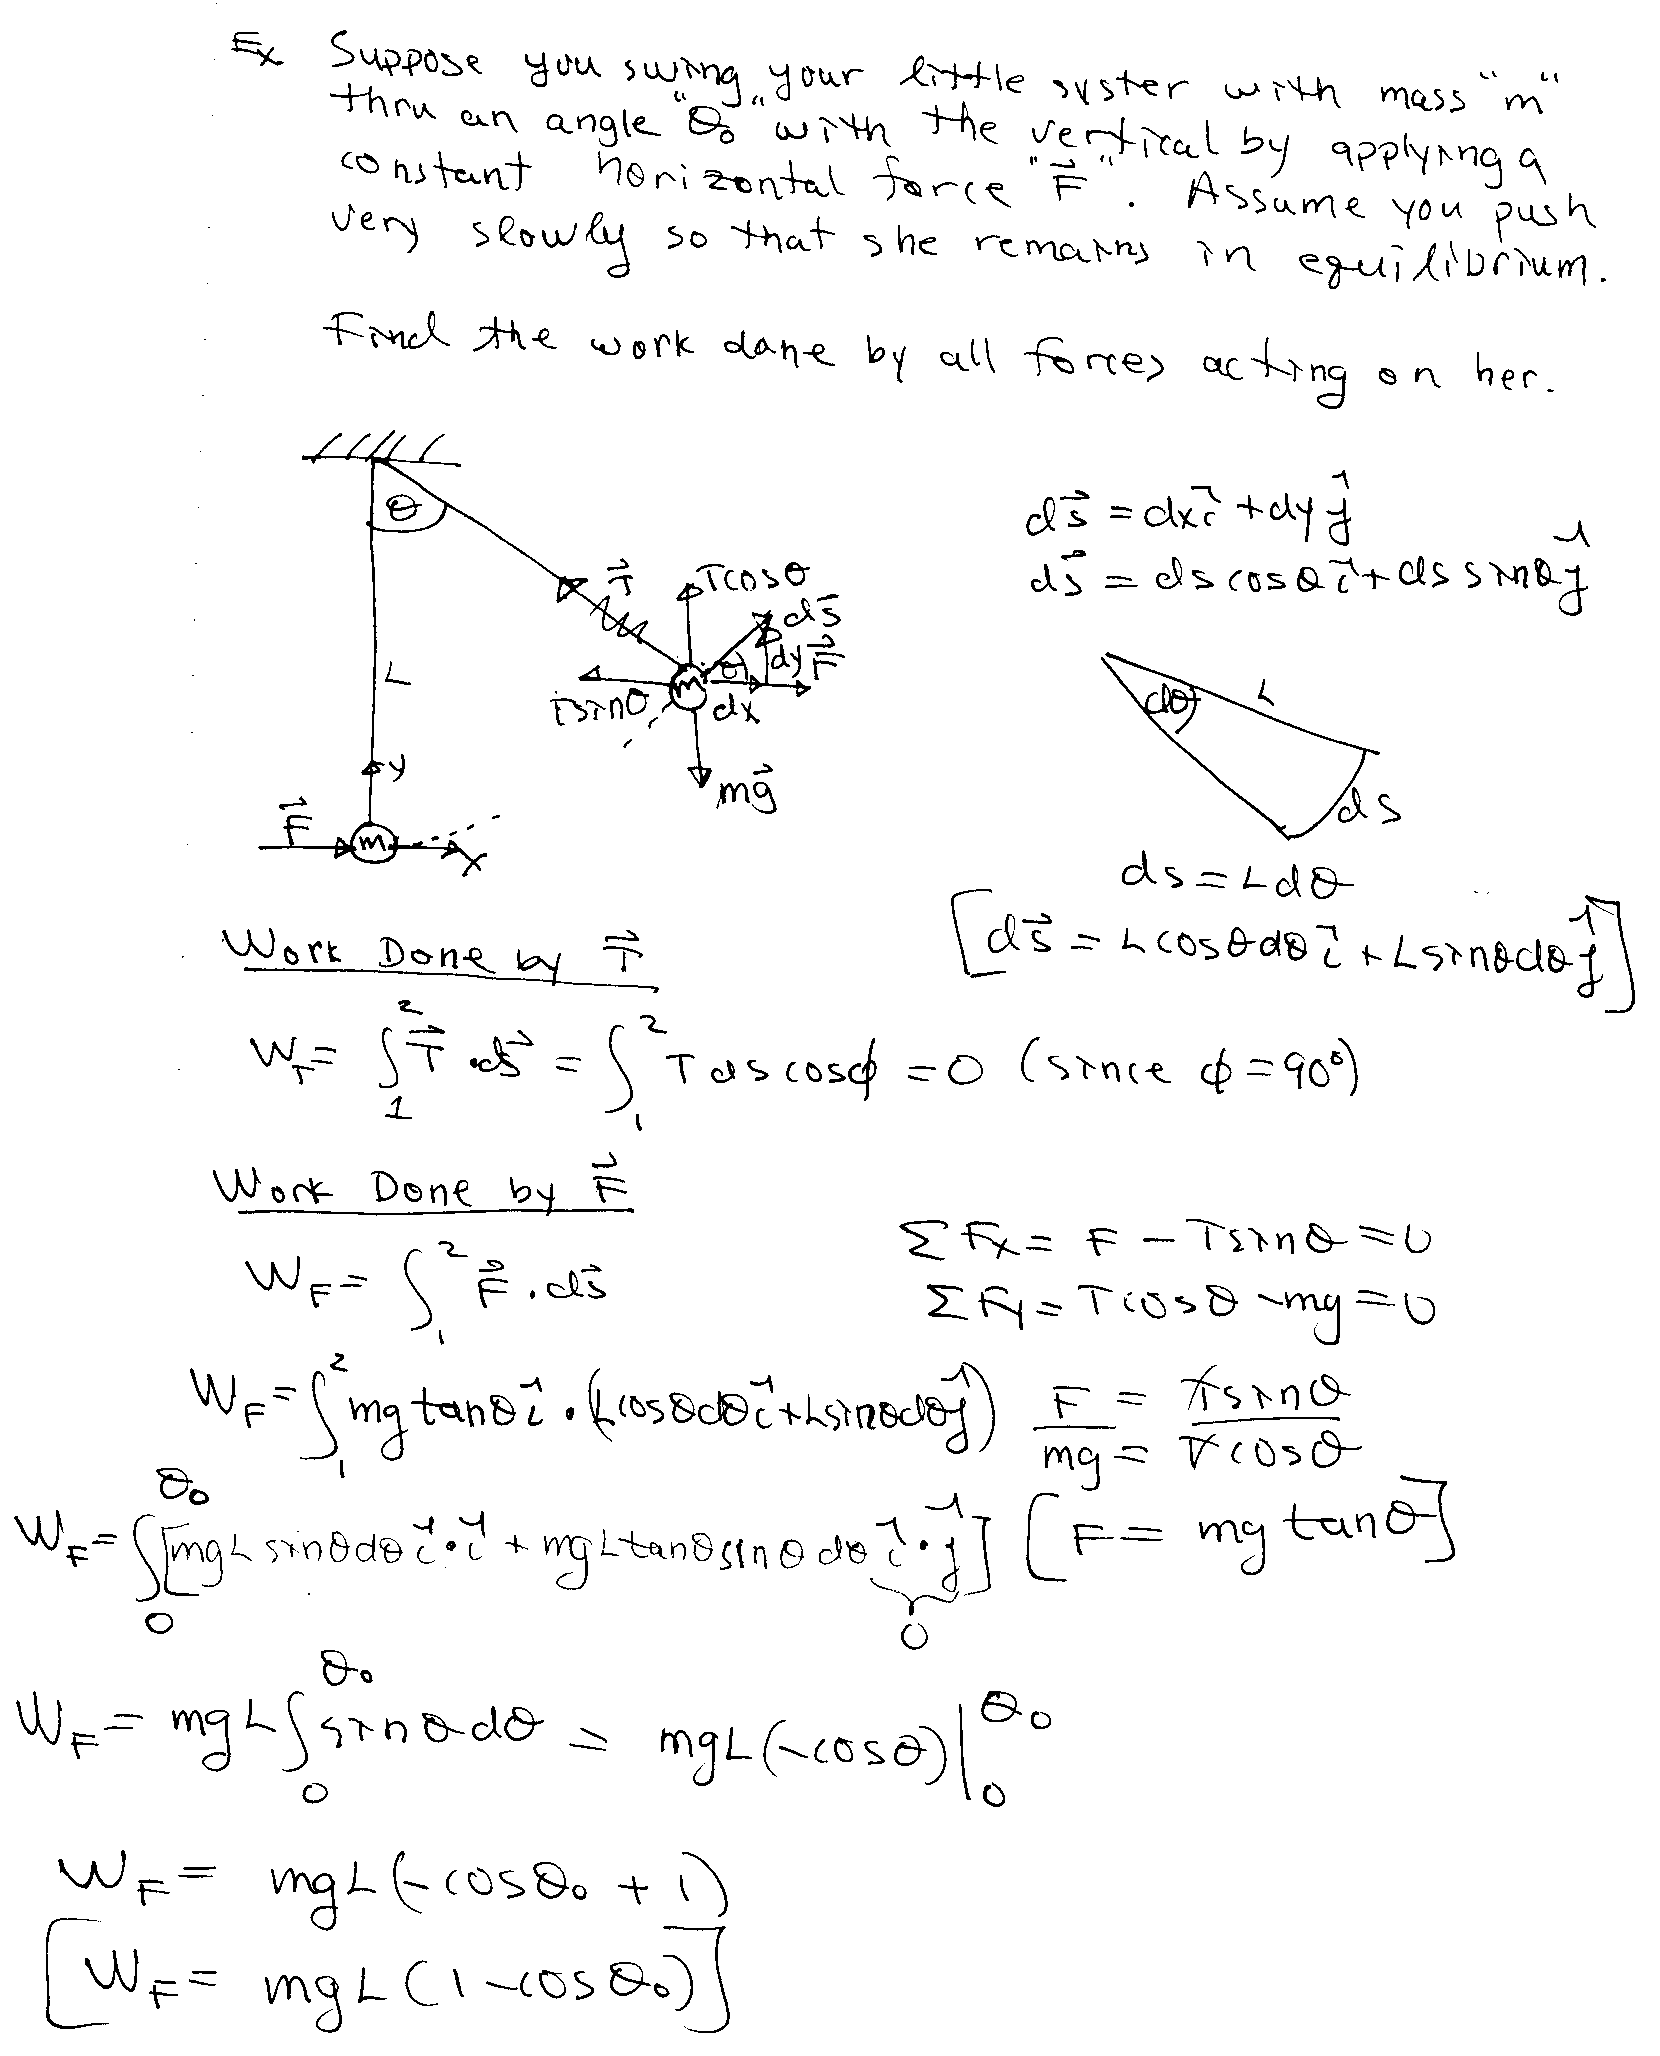 Ex Suppose you swing your little syster with mass "m"
thru an angle "θ₀" with the vertical by applying a
constant horizontal force "F⃗". Assume you push
very slowly so that she remains in equilibrium.
Find the work done by all forces acting on her.
θ
T⃗
Tcosθ
ds⃗
θ
dy
F⃗
m
Tsinθ
dx
mg⃗
L
y
F⃗
m
x
ds⃗ = dx î + dy ĵ
ds⃗ = ds cosθ î + ds sinθ ĵ
dθ
L
ds
ds = Ldθ
[ds⃗ = Lcosθdθ î + Lsinθdθ ĵ]
Work Done by T⃗
W_T = ∫₁² T⃗ · ds⃗ = ∫₁² T ds cosϕ = 0 (since ϕ = 90°)
Work Done by F⃗
W_F = ∫₁² F⃗ . ds⃗
ΣFx = F − Tsinθ = 0
ΣFy = Tcosθ − mg = 0
W_F = ∫₁² mg tanθ î · (Lcosθdθ î + Lsinθdθ ĵ)
F/mg = Tsinθ/Tcosθ
W_F = ∫₀^θ₀ [mgL sinθdθ î·î + mgLtanθsinθdθ î·ĵ]
0
[F = mg tanθ]
W_F = mgL ∫₀^θ₀ sinθdθ = mgL(−cosθ)|₀^θ₀
W_F = mgL(−cosθ₀ + 1)
[W_F = mgL(1 − cosθ₀)]